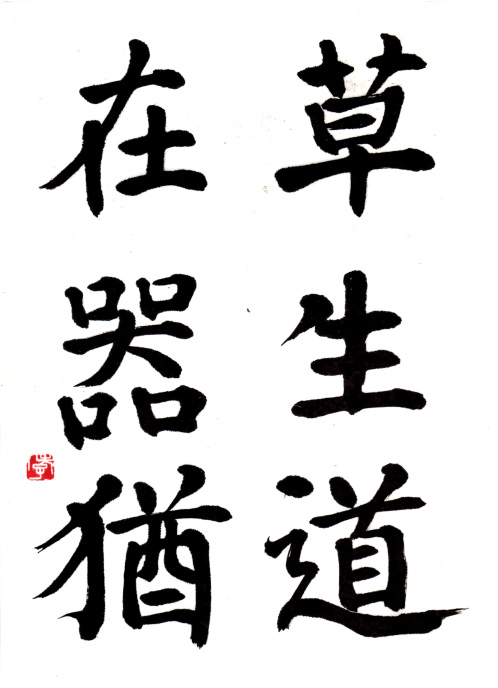 草生道
在器猶